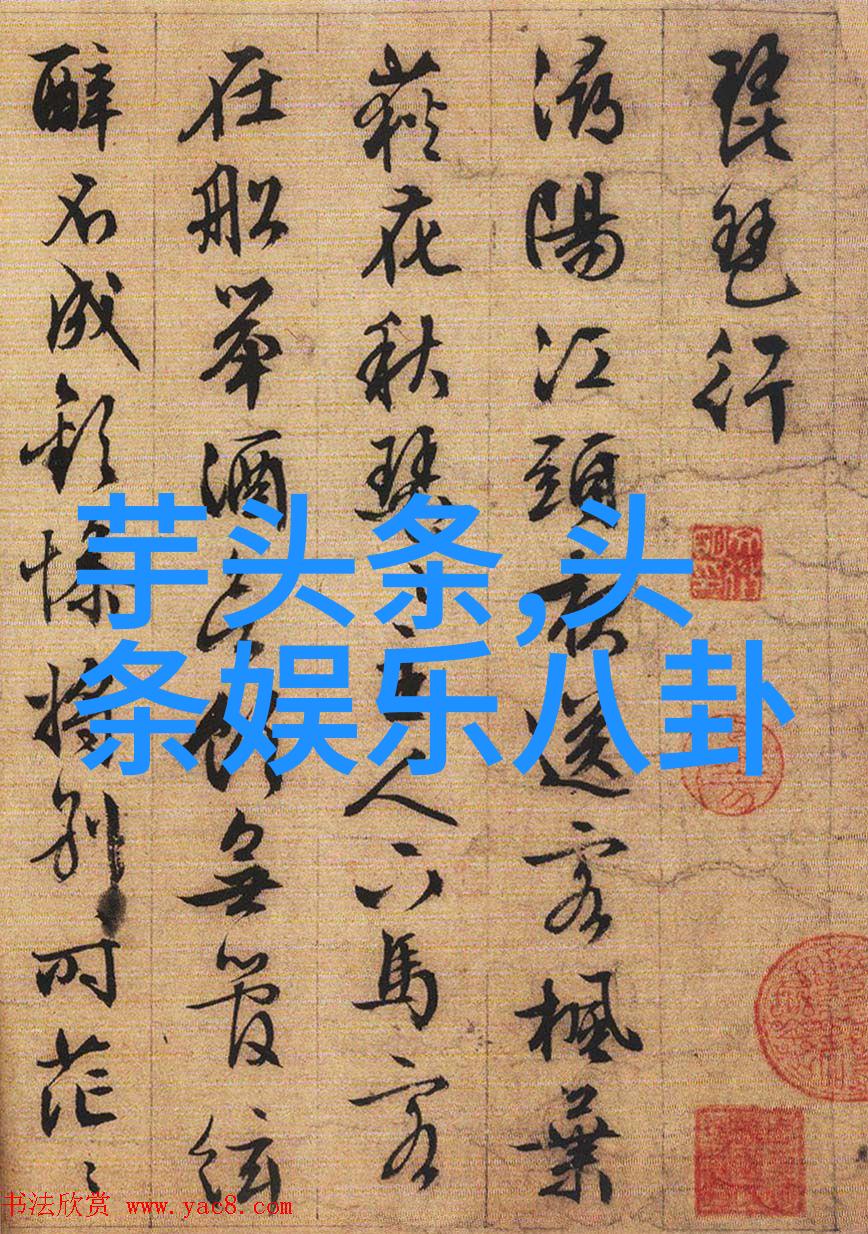 琵琶行
潯陽江頭夜送客楓葉
荻花秋瑟〻主人下馬客
在船舉酒欲飲無管絃
醉不成歡慘將別時茫〻
芋头条,头
条娱乐八卦
书法欣赏 www.yac8.com